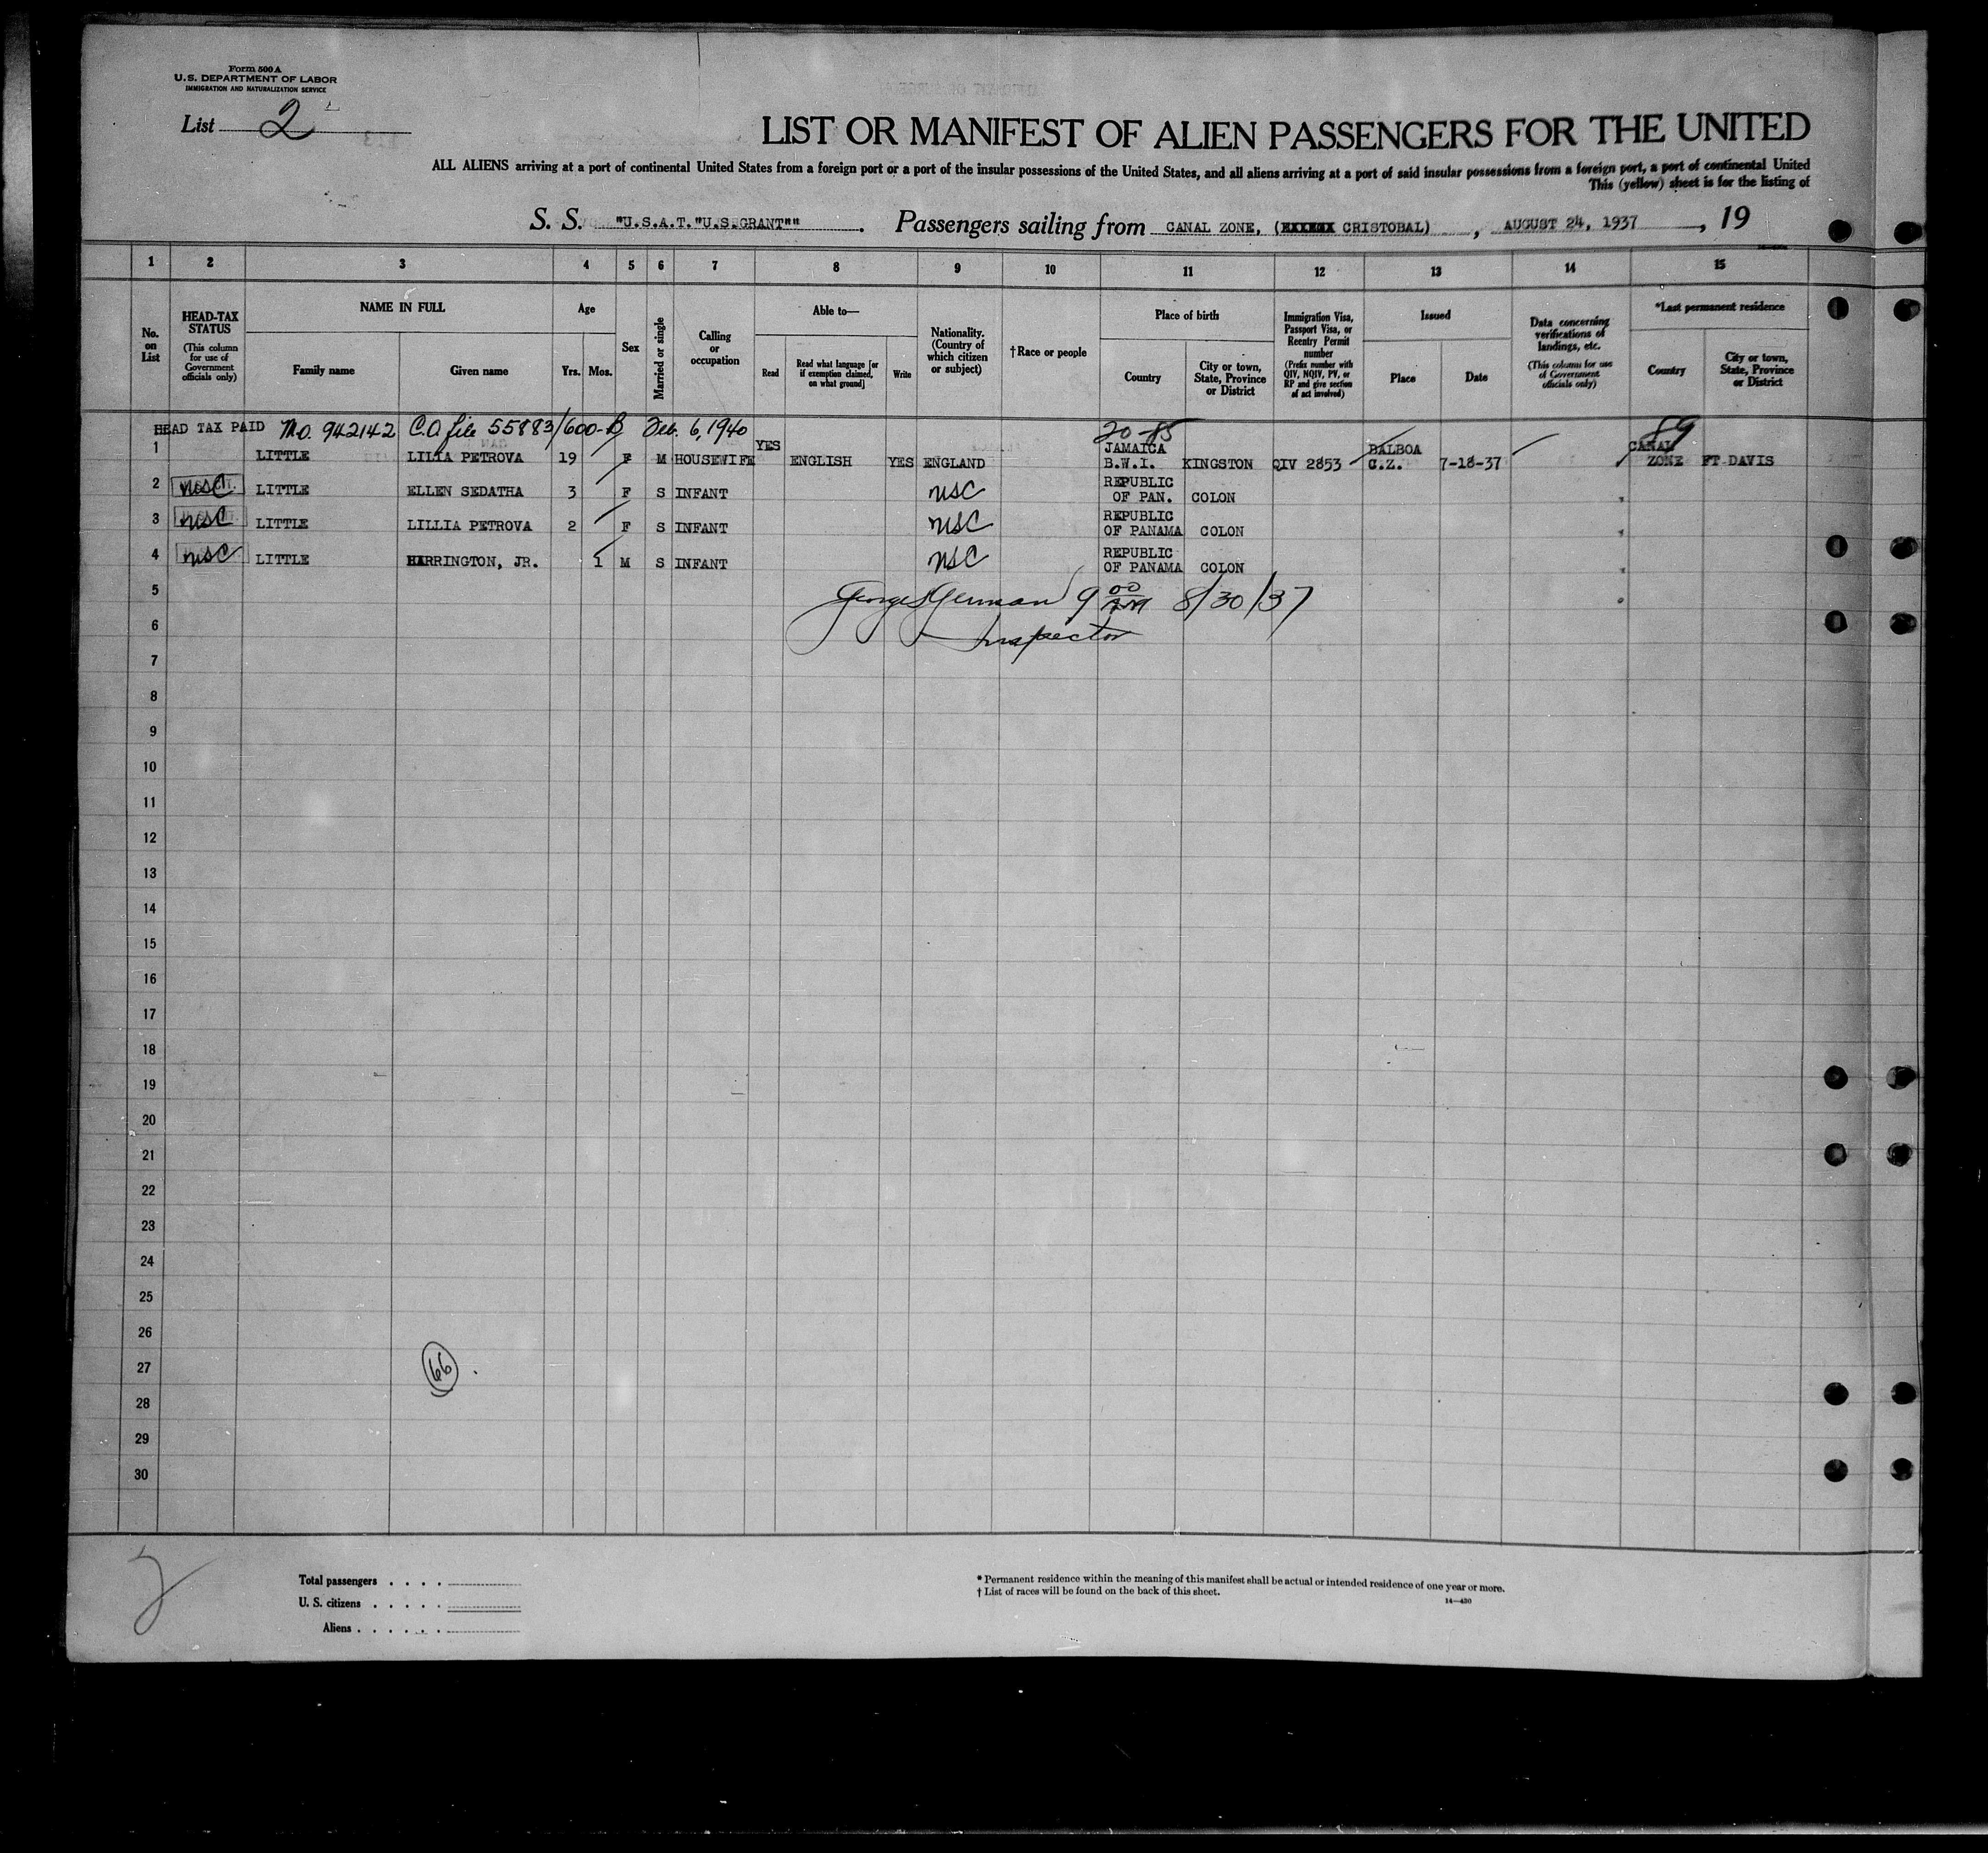 Form 500 A
U.S. DEPARTMENT OF LABOR
IMMIGRATION AND NATURALIZATION SERVICE
List 2
LIST OR MANIFEST OF ALIEN PASSENGERS FOR THE UNITED
ALL ALIENS arriving at a port of continental United States from a foreign port or a port of the insular possessions of the United States, and all aliens arriving at a port of said insular possessions from a foreign port, a port of continental United
This (yellow) sheet is for the listing of
S. S. "U.S.A.T."U.S.GRANT"" . Passengers sailing from CANAL ZONE, ( CRISTOBAL) , AUGUST 24, 1937 , 19
1 2 3 4 5 6 7 8 9 10 11 12 13 14 15
No. on List
HEAD-TAX STATUS (This column for use of Government officials only)
NAME IN FULL
Family name
Given name
Age
Yrs. Mos.
Sex
Married or single
Calling or occupation
Able to—
Read
Read what language [or if exemption claimed, on what ground]
Write
Nationality. (Country of which citizen or subject)
†Race or people
Place of birth
Country
City or town, State, Province or District
Immigration Visa, Passport Visa, or Reentry Permit number (Prefix number with QIV, NQIV, PV, or RP and give section of act involved)
Issued
Place
Date
Data concerning verifications of landings, etc. (This column for use of Government officials only)
*Last permanent residence
Country
City or town, State, Province or District
HEAD TAX PAID M.O. 942142 C.O. file 55883/600-B Feb. 6, 1940 20-85 89
1 LITTLE LILIA PETROVA 19 F M HOUSEWIFE YES ENGLISH YES ENGLAND JAMAICA B.W.I. KINGSTON QIV 2853 BALBOA C.Z. 7-18-37 CANAL ZONE FT DAVIS
2 USC LITTLE ELLEN SEDATHA 3 F S INFANT USC REPUBLIC OF PAN. COLON
3 USC LITTLE LILLIA PETROVA 2 F S INFANT USC REPUBLIC OF PANAMA COLON
4 USC LITTLE HARRINGTON, JR. 1 M S INFANT USC REPUBLIC OF PANAMA COLON
5 George German 9 00 AM 8/30/37
6 Inspector
7
8
9
10
11
12
13
14
15
16
17
18
19
20
21
22
23
24
25
26
27 66
28
29
30
Total passengers . . . .
U. S. citizens . . . . .
Aliens . . . . . .
* Permanent residence within the meaning of this manifest shall be actual or intended residence of one year or more.
† List of races will be found on the back of this sheet.
14—430
2